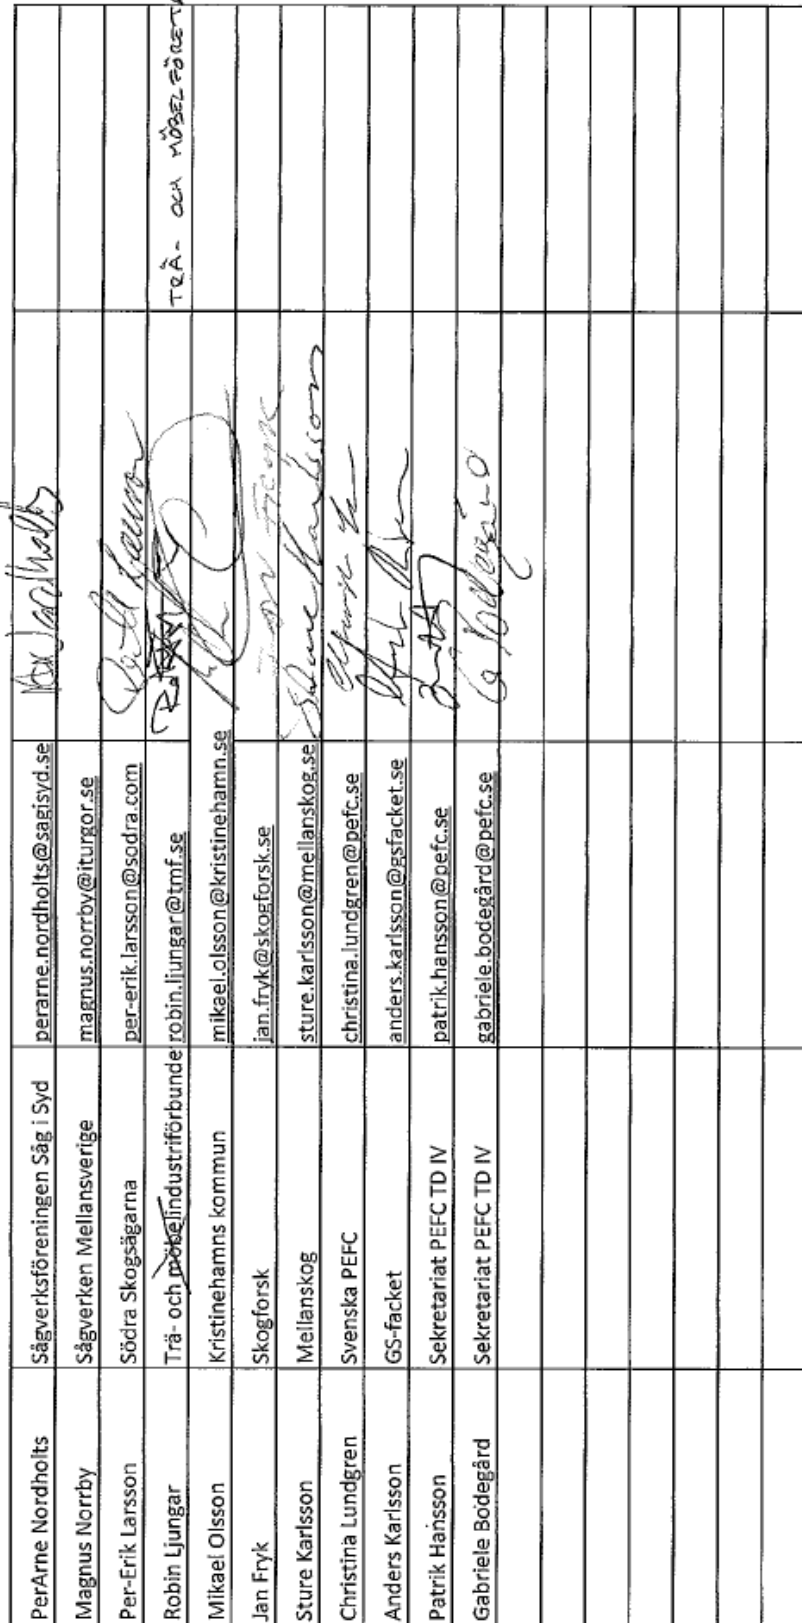 PerArne Nordholts Sågverksföreningen Såg i Syd perarne.nordholts@sagisyd.se
Magnus Norrby Sågverken Mellansverige magnus.norrby@iturgor.se
Per-Erik Larsson Södra Skogsägarna per-erik.larsson@sodra.com
Robin Ljungar Trä- och möbelindustriförbunde robin.ljungar@tmf.se TRÄ- OCH MÖBELFÖRETA
Mikael Olsson Kristinehamns kommun mikael.olsson@kristinehamn.se
Jan Fryk Skogforsk jan.fryk@skogforsk.se
Sture Karlsson Mellanskog sture.karlsson@mellanskog.se Sture Karlsson
Christina Lundgren Svenska PEFC christina.lundgren@pefc.se
Anders Karlsson GS-facket anders.karlsson@gsfacket.se
Patrik Hansson Sekretariat PEFC TD IV patrik.hansson@pefc.se
Gabriele Bodegård Sekretariat PEFC TD IV gabriele.bodegård@pefc.se G Bodegård